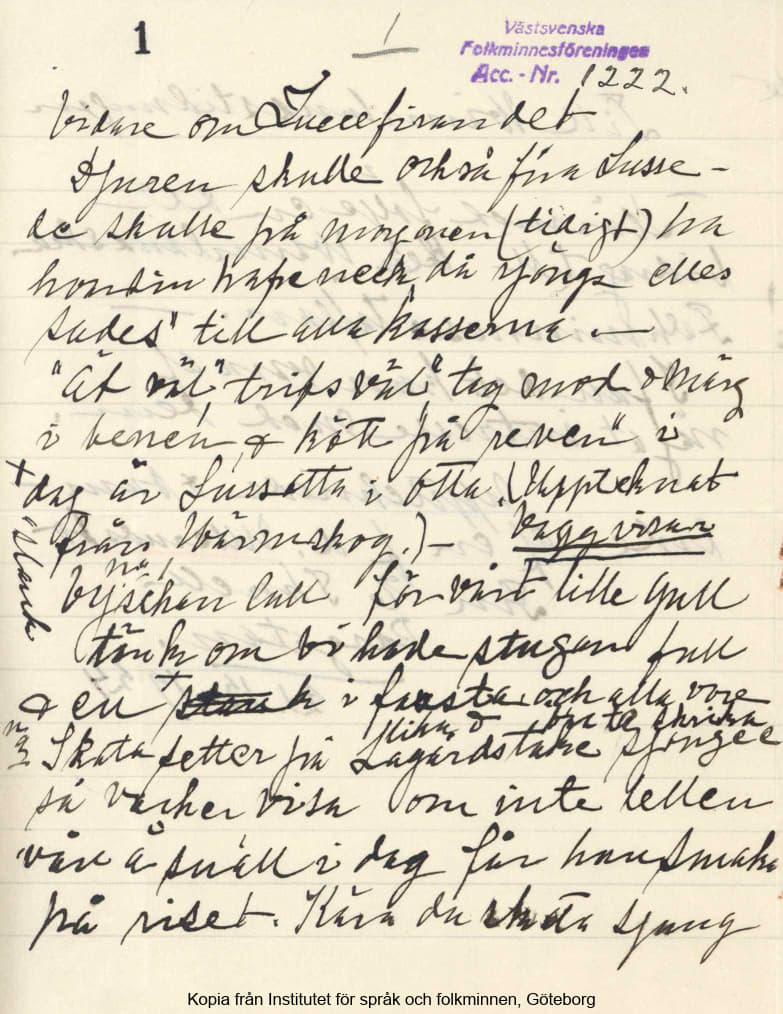 1
1
Västsvenska
Folkminnesföreningen
Acc.-Nr. 1222.
Vidare om Luccefirandet
Djuren skulle också fira Lusse-
de skulle på morgonen (tidigt) ha
havreneck, då sjöngs elles
sades" till alla kosserna.—
"Ät väl," "trifs väl" tag mod & märg
i benen & kött "på reven" i
dag är Lussotta i otta. (Uppteknat
från Värmskog.)— Vaggvisar
no 1
Vyschan lull för vårt lille gull
tänk om vi hade stugan full
& en + i farsta och alla vore
lika & inte skrika
+ slank
no 2
Skata setter på Lagårdstake sjonger
så vacker visa om inte lellen
vår å snäll i dag får han smaka
på riset. Kära du skata sjung
Kopia från Institutet för språk och folkminnen, Göteborg